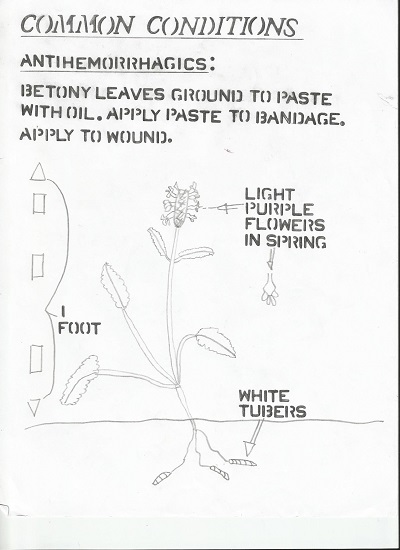 COMMON CONDITIONS
ANTIHEMORRHAGICS:
BETONY LEAVES GROUND TO PASTE
WITH OIL. APPLY PASTE TO BANDAGE.
APPLY TO WOUND.
LIGHT
PURPLE
FLOWERS
IN SPRING
1
FOOT
WHITE
TUBERS